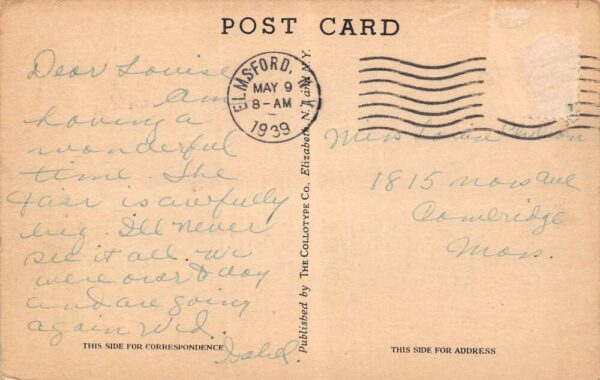 POST CARD
Dear Louise
Am
having a
wonderful
time. The
Fair is awfully
big. I'll never
see it all. We
were over today
and are going
again Wed.
Isabel.
THIS SIDE FOR CORRESPONDENCE
ELMSFORD, N.Y.
MAY 9
8-AM
1939
Published by THE COLLOTYPE CO., Elizabeth, N.J. and N.Y.
Miss
1815 Mass Ave
Cambridge
Mass.
THIS SIDE FOR ADDRESS